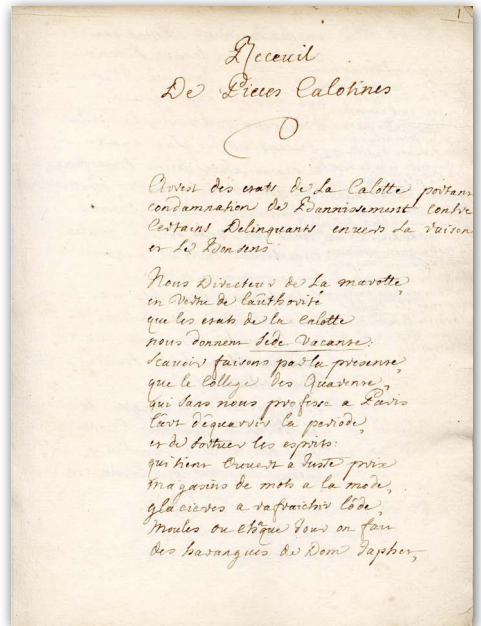 1
Receuil
De Pieces Calotines
Arrest des etats de La Calotte portant
condamnation de Bannissement contre
Certains Delinquants envers La raison
et Le Bonsens
Nous Directeur de La marotte
en Vertu de L'authorité
que les etats de la Calotte
nous donnent Sede Vacante:
scavoir faisons par la presente,
que le College des Quarente,
qui sans nous professe a Paris
L'art d'équarrir la periode,
et de tortuer les esprits:
qui tient Ouvert a Juste prix
magasins de mots a la mode,
glacieres a rafraichir L'ode,
Moules ou chaque Jour on fait
des harangues de Dom Japhet,